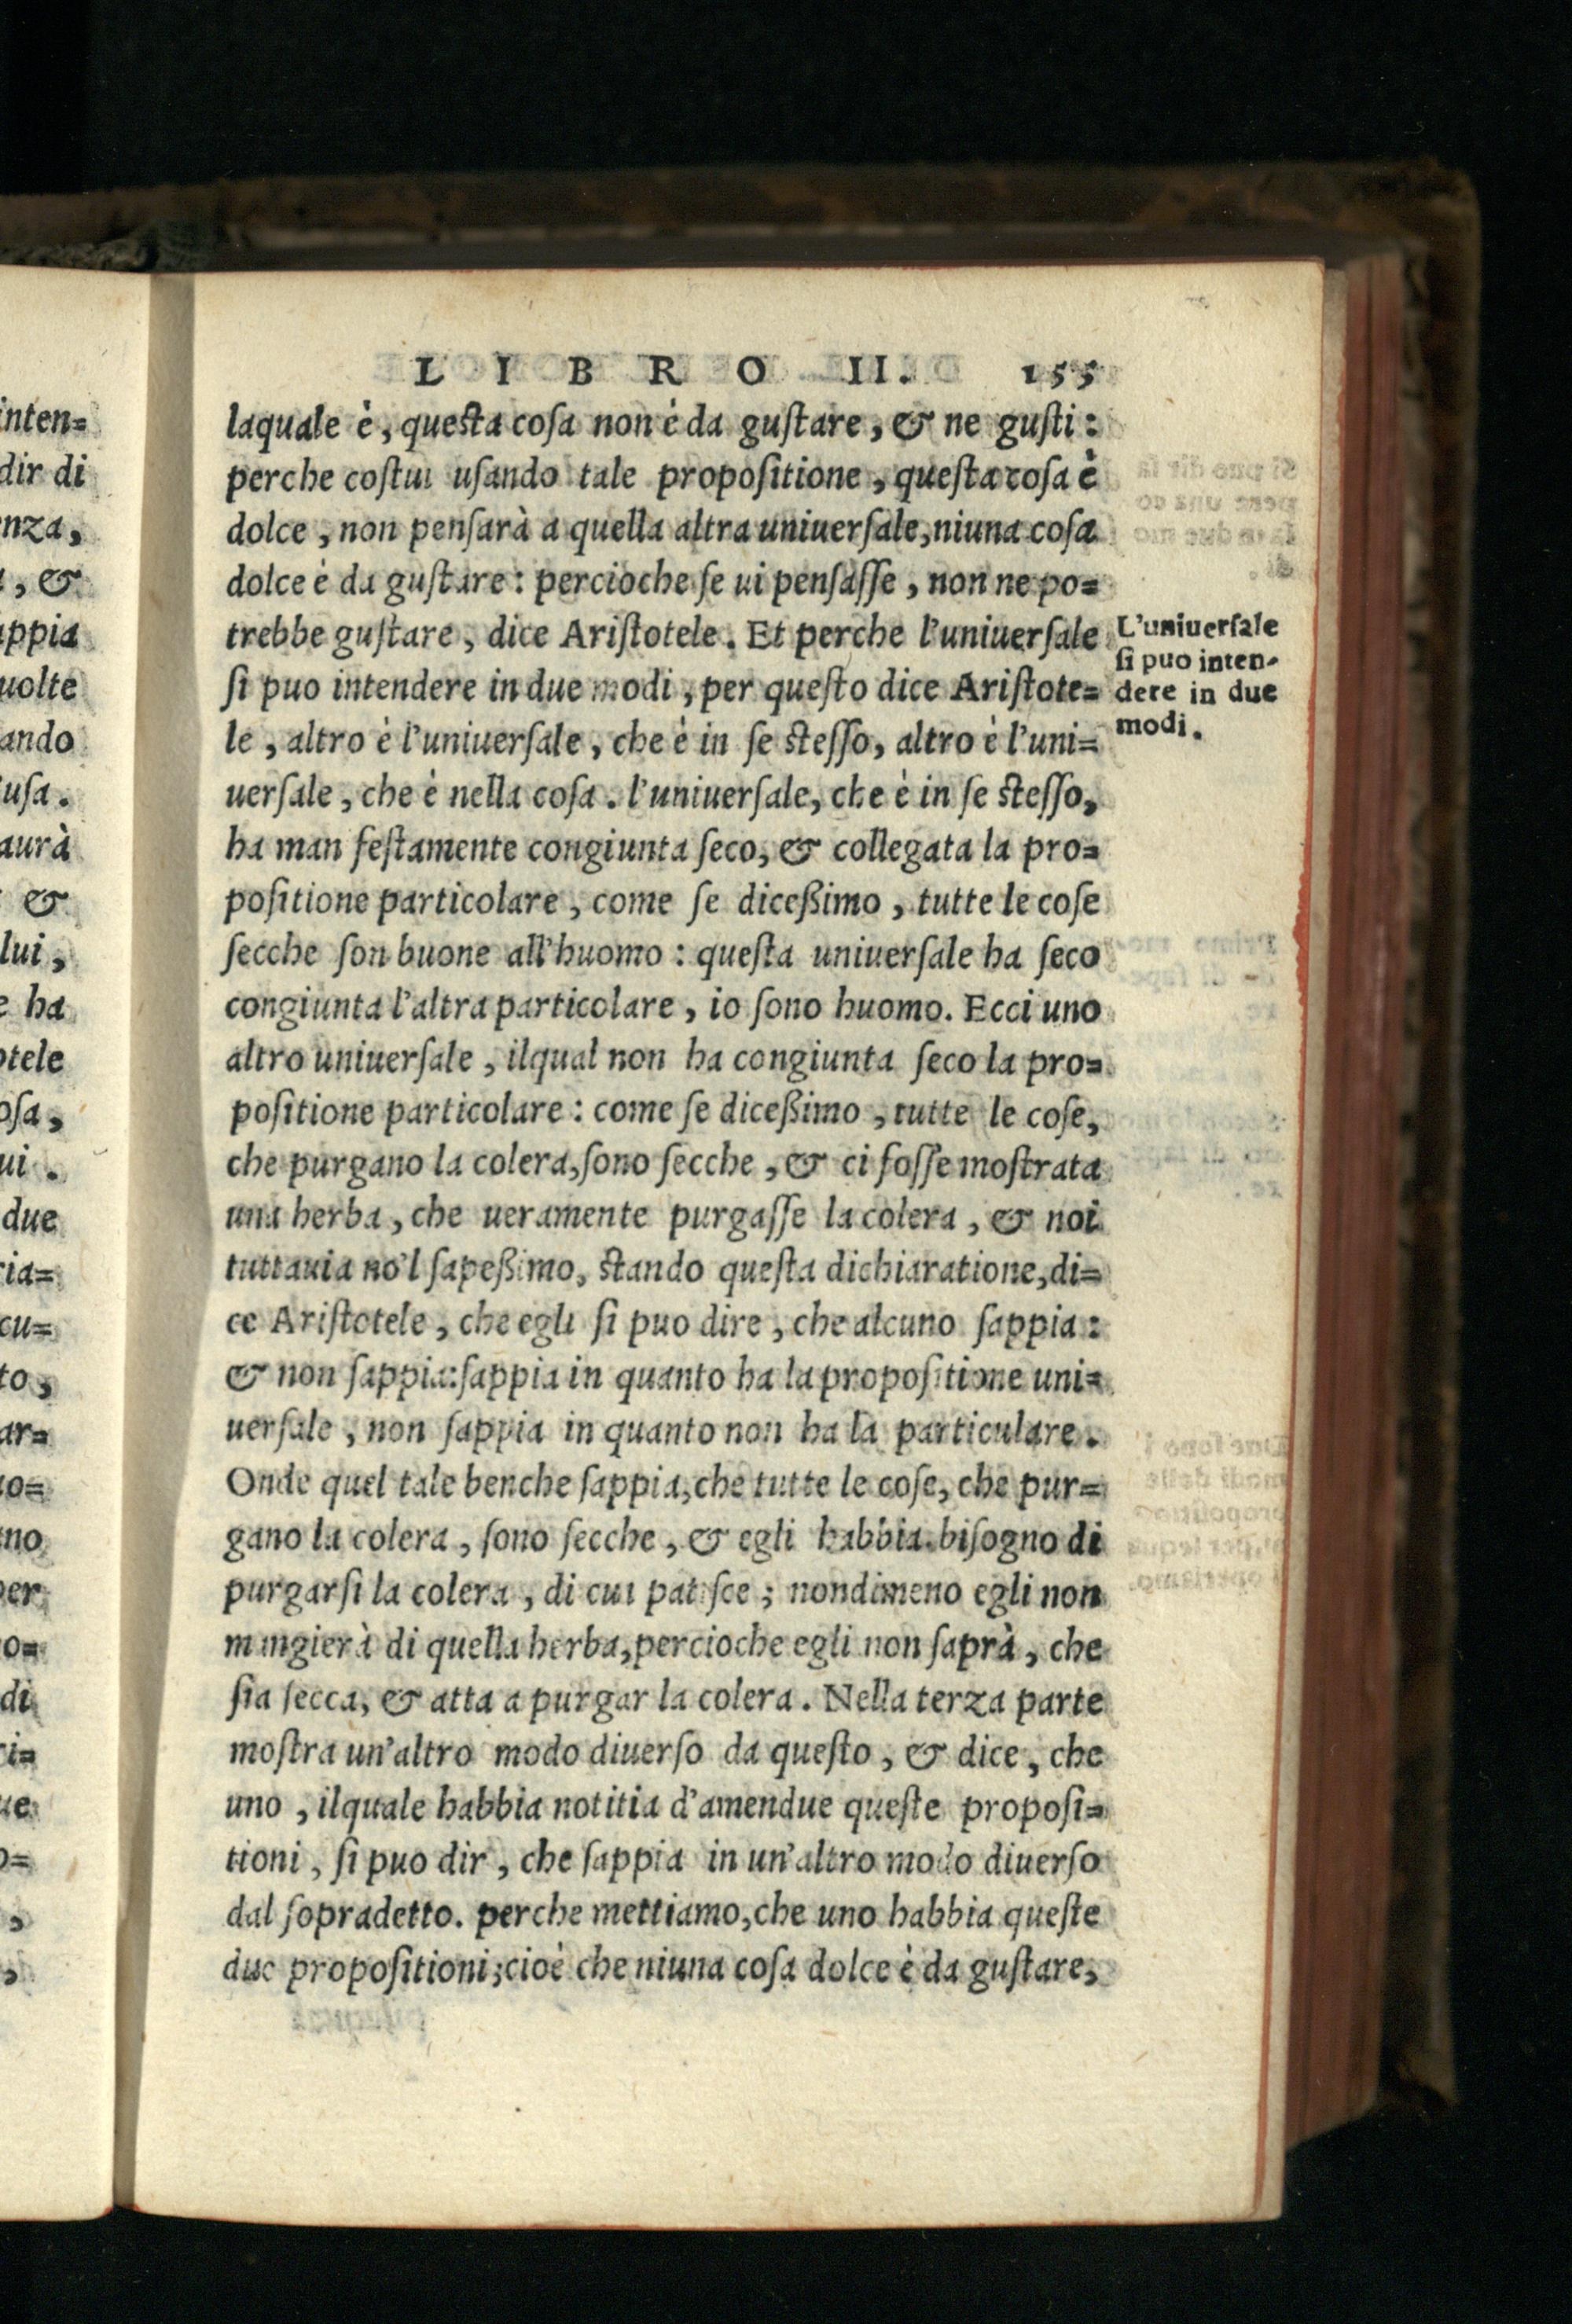 LIBRO II. 155
laquale è, queſta coſa non è da guſtare, & ne guſti:
perche coſtui uſando tale propoſitione, queſta coſa è
dolce, non penſarà a quella altra uniuerſale, niuna coſa
dolce è da guſtare: percioche ſe ui penſaſſe, non ne po=
trebbe guſtare, dice Ariſtotele. Et perche l'uniuerſale
ſi puo intendere in due modi, per queſto dice Ariſtote=
le, altro è l'uniuerſale, che è in ſe ſteſſo, altro è l'uni=
uerſale, che è nella coſa. l'uniuerſale, che è in ſe ſteſſo,
ha man feſtamente congiunta ſeco, & collegata la pro=
poſitione particolare, come ſe diceßimo, tutte le coſe
ſecche ſon buone all'huomo: queſta uniuerſale ha ſeco
congiunta l'altra particolare, io ſono huomo. Ecci uno
altro uniuerſale, ilqual non ha congiunta ſeco la pro=
poſitione particolare: come ſe diceßimo, tutte le coſe,
che purgano la colera, ſono ſecche, & ci foſſe moſtrata
una herba, che ueramente purgaſſe la colera, & noi
tuttauia no'l ſapeßimo, ſtando queſta dichiaratione, di=
ce Ariſtotele, che egli ſi puo dire, che alcuno ſappia:
& non ſappia: ſappia in quanto ha la propoſitione uni=
uerſale, non ſappia in quanto non ha la particulare.
Onde quel tale benche ſappia, che tutte le coſe, che pur=
gano la colera, ſono ſecche, & egli habbia biſogno di
purgarſi la colera, di cui patiſce; nondimeno egli non
mangierà di quella herba, percioche egli non ſaprà, che
ſia ſecca, & atta a purgar la colera. Nella terza parte
moſtra un'altro modo diuerſo da queſto, & dice, che
uno, ilquale habbia notitia d'amendue queſte propoſi=
tioni, ſi puo dir, che ſappia in un'altro modo diuerſo
dal ſopradetto. perche mettiamo, che uno habbia queſte
due propoſitioni; cioè che niuna coſa dolce è da guſtare,
L'uniuerſale
ſi puo inten-
dere in due
modi.
inten=
dir di
nza,
, &
ppia
uolte
ando
uſa.
aurà
&
lui,
ha
otele
oſa,
ui.
due
ria=
cu=
to,
ar=
no=
no
er
o=
di
i=
ue
o=
,
,